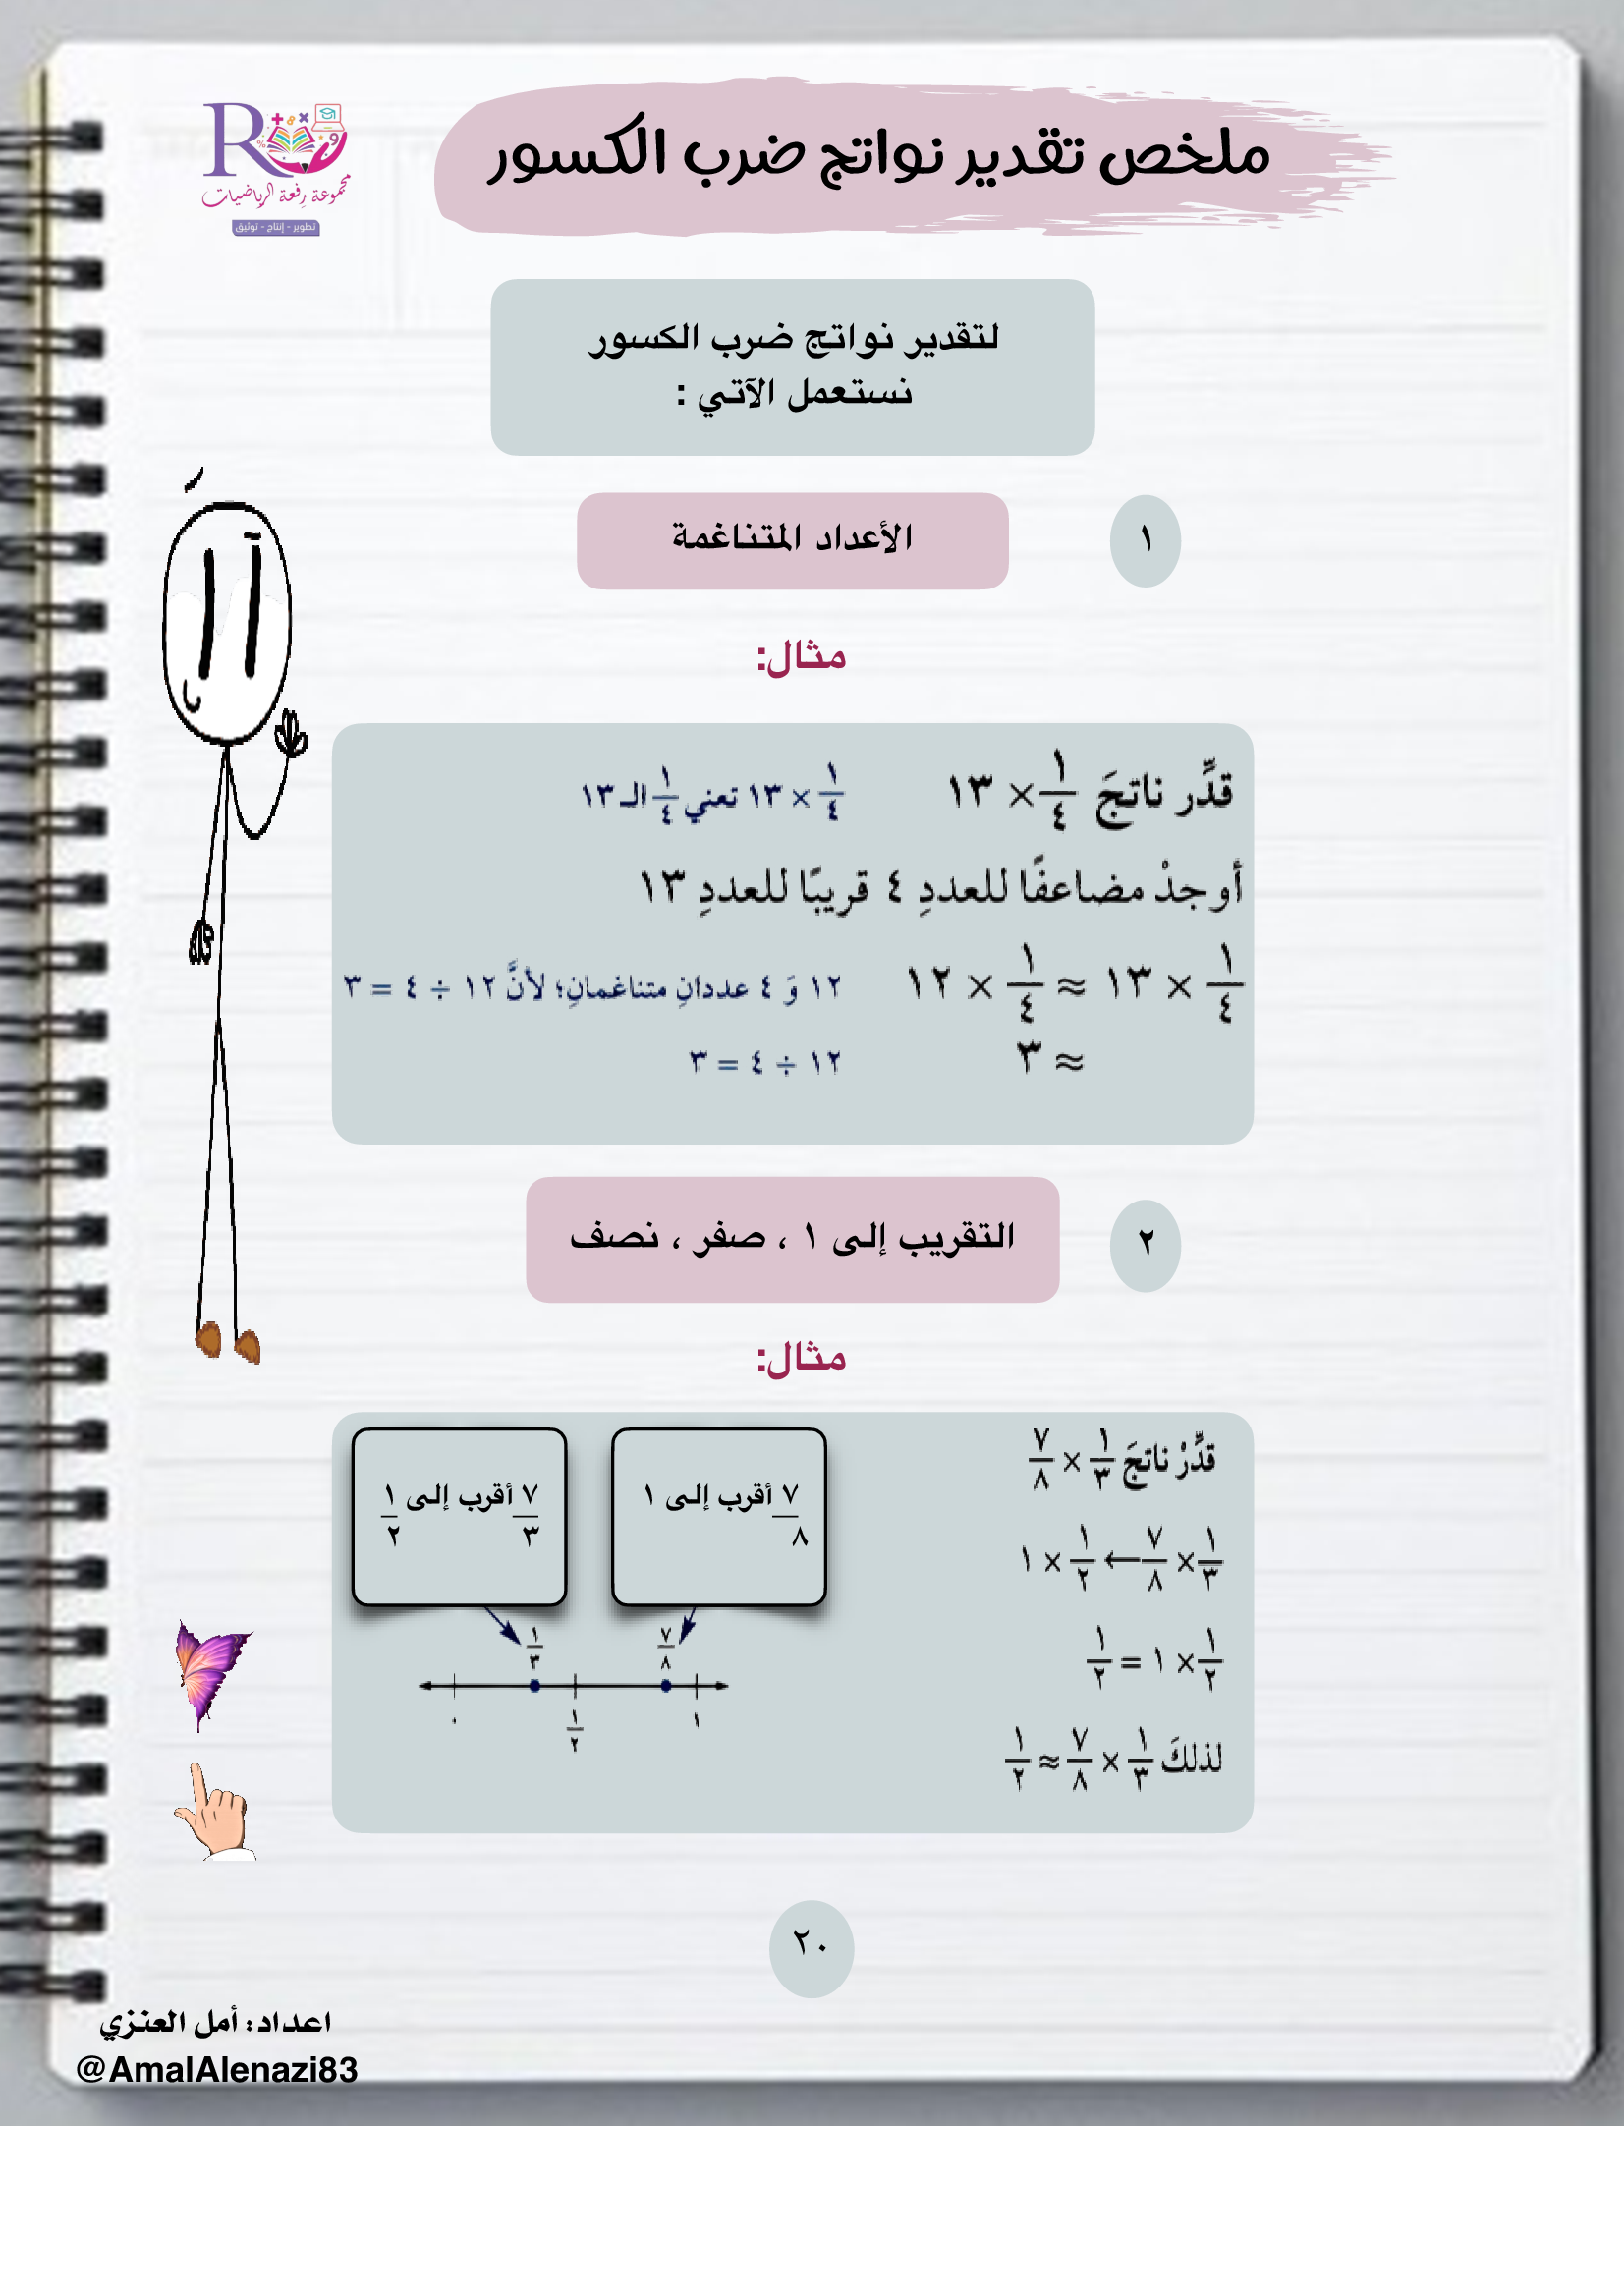 ملخص تقدير نواتج ضرب الكسور
R
مجموعة رفعة الرياضيات
تطوير - إنتاج - توثيق
لتقدير نواتج ضرب الكسور
نستعمل الآتي :
١
الأعداد المتناغمة
مثال:
قدِّر ناتجَ ١/٤ × ١٣
١/٤ × ١٣ تعني ١/٤ الـ ١٣
أوجدْ مضاعفًا للعددِ ٤ قريبًا للعددِ ١٣
١/٤ × ١٣ ≈ ١/٤ × ١٢
١٢ وَ ٤ عددانِ متناغمانِ؛ لأنَّ ١٢ ÷ ٤ = ٣
≈ ٣
١٢ ÷ ٤ = ٣
٢
التقريب إلى ١ ، صفر ، نصف
مثال:
قدِّرْ ناتجَ ١/٣ × ٧/٨
١/٣ × ٧/٨ ← ١/٢ × ١
١/٢ × ١ = ١/٢
لذلكَ ١/٣ × ٧/٨ ≈ ١/٢
٧/٨ أقرب إلى ١
٧/٣ أقرب إلى ١/٢
١/٣ ٧/٨
٠ ١/٢ ١
٢٠
اعداد: أمل العنزي
@AmalAlenazi83